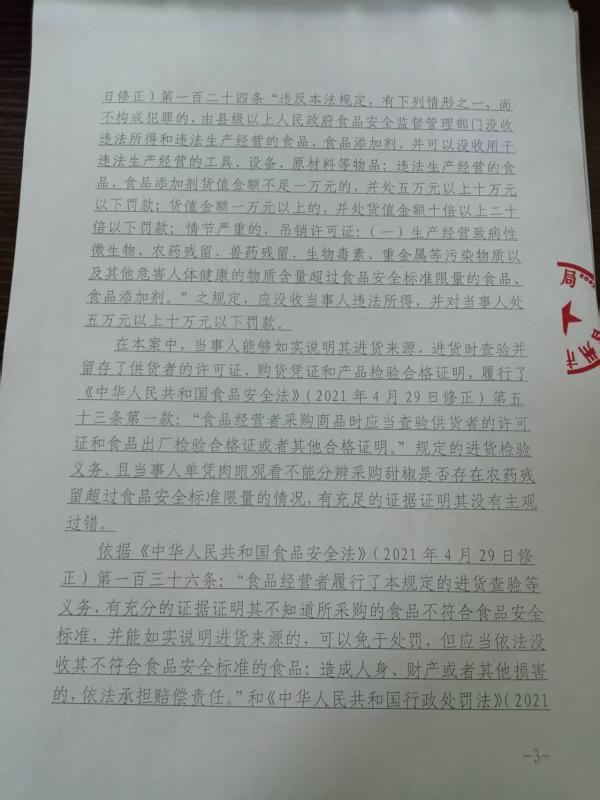 日修正）第一百二十四条“违反本法规定，有下列情形之一，尚
不构成犯罪的，由县级以上人民政府食品安全监督管理部门没收
违法所得和违法生产经营的食品、食品添加剂，并可以没收用于
违法生产经营的工具、设备、原材料等物品；违法生产经营的食
品、食品添加剂货值金额不足一万元的，并处五万元以上十万元
以下罚款；货值金额一万元以上的，并处货值金额十倍以上二十
倍以下罚款；情节严重的，吊销许可证：（一）生产经营致病性
微生物、农药残留、兽药残留、生物毒素、重金属等污染物质以
及其他危害人体健康的物质含量超过食品安全标准限量的食品、
食品添加剂。”之规定，应没收当事人违法所得，并对当事人处
五万元以上十万元以下罚款。
在本案中，当事人能够如实说明其进货来源，进货时查验并
留存了供货者的许可证、购货凭证和产品检验合格证明，履行了
《中华人民共和国食品安全法》（2021 年 4 月 29 日修正）第五
十三条第一款：“食品经营者采购商品时应当查验供货者的许可
证和食品出厂检验合格证或者其他合格证明。”规定的进货检验
义务。且当事人单凭肉眼观看不能分辨采购甜椒是否存在农药残
留超过食品安全标准限量的情况，有充足的证据证明其没有主观
过错。
依据《中华人民共和国食品安全法》（2021 年 4 月 29 日修
正）第一百三十六条：“食品经营者履行了本规定的进货查验等
义务，有充分的证据证明其不知道所采购的食品不符合食品安全
标准，并能如实说明进货来源的，可以免于处罚，但应当依法没
收其不符合食品安全标准的食品；造成人身、财产或者其他损害
的，依法承担赔偿责任。”和《中华人民共和国行政处罚法》（2021
-3-
局
市